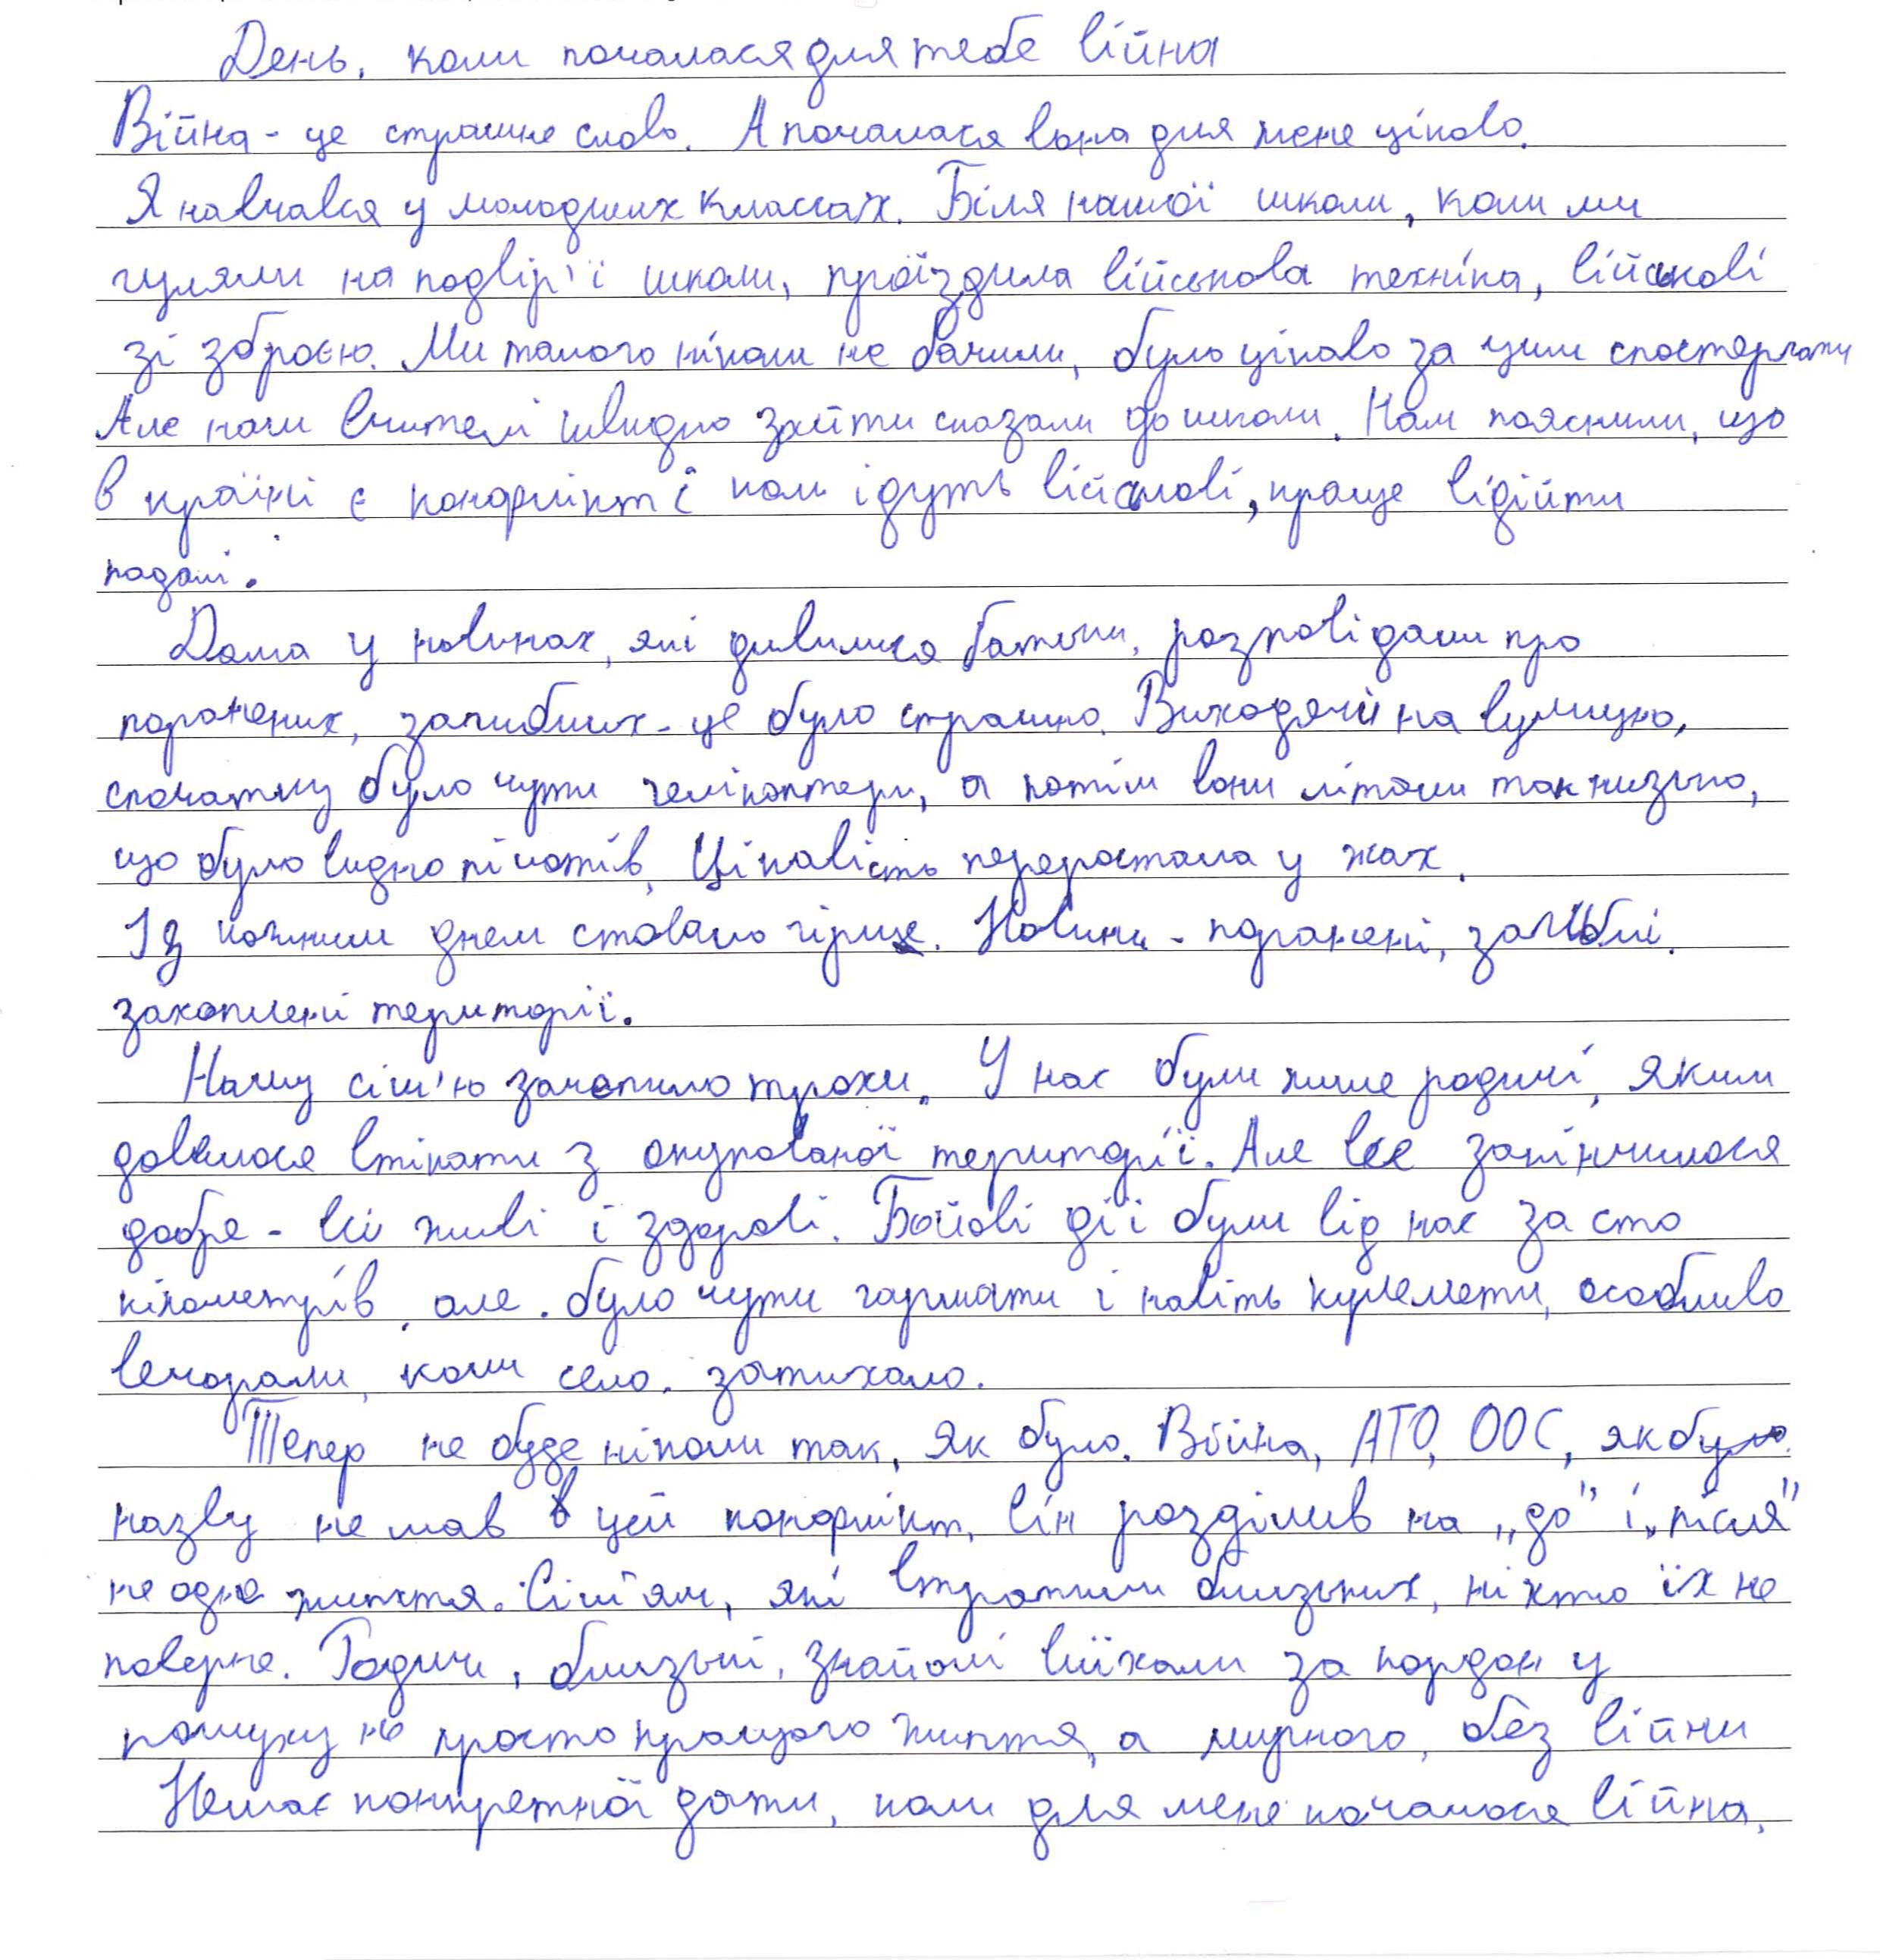 День, коли почалася для тебе війна
Війна - це страшне слово. А почалася вона для мене цікаво.
Я навчався у молодших классах. Біля нашої школи, коли ми
гуляли на подвір'ї школи, проїздила військова техніка, військові
зі зброєю. Ми такого ніколи не бачили, було цікаво за цим спостерігати
Але наши вчителі швидко зайти сказали до школи. Нам пояснили, що
в країні є конфлікт і коли ідуть військові, краще відійти
подалі.
Дома у новинах, які дивилися батьки, розповідали про
поранених, загиблих - це було страшно. Виходячи на вулицю,
спочатку було чути гелікоптери, а потім вони літали так низько,
що було видно пілотів. Цікавість переростала у жах.
Із кожним днем ставало гірше. Новини - поранені, загиблі.
захоплені території.
Нашу сім'ю зачепило трохи. У нас були лише родичі, яким
довелося втікати з окупованої території. Але все закінчилося
добре - всі живі і здорові. Бойові дії були від нас за сто
кілометрів, але було чути гармати і навіть кулемети, особливо
вечорами, коли село затихало.
Тепер не буде ніколи так, як було. Війна, АТО, ООС, як було
назву не мав в цей конфлікт, він розділив на „до" і „після"
не одне життя. Сім'ям, які втратили близьких, ніхто їх не
поверне. Родичи, близькі, знайомі виїхали за кордон у
пошуку не просто кращого життя, а мирного, без війни
Немає конкретної дати, коли для мене почалася війна.